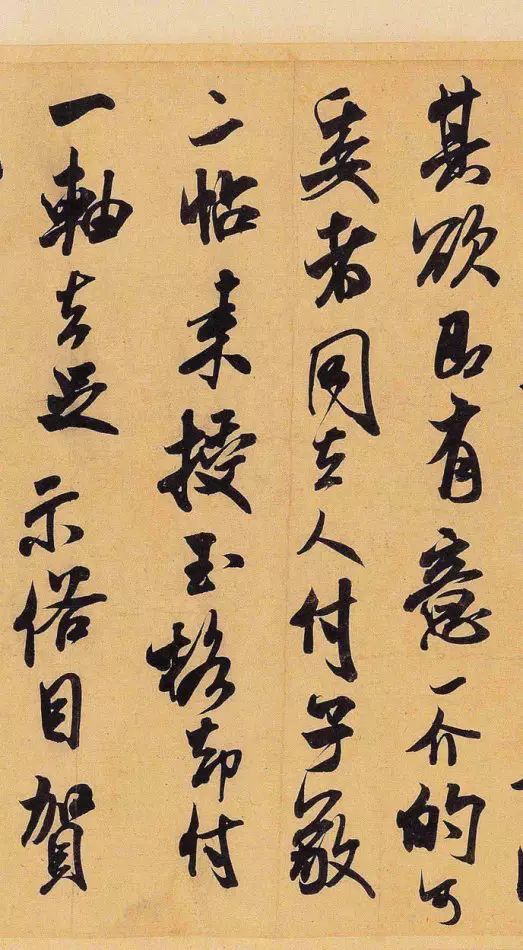 其欲即有意一介的可
委者同去人付子敬
二帖來授玉格却付
一軸去足示俗目賀